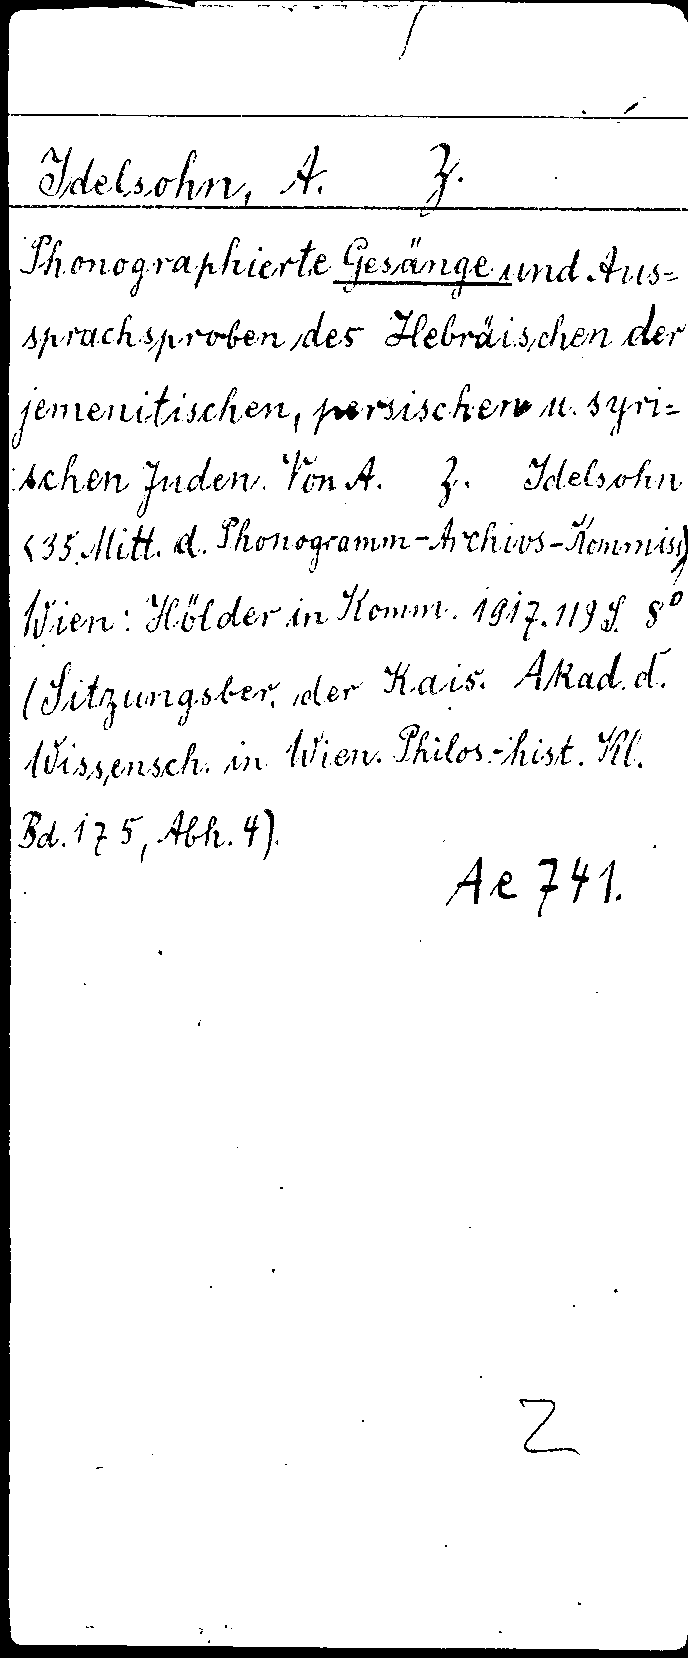 Idelsohn, A. Z.
Phonographierte Gesänge und Aus=
sprachsproben des Hebräischen der
jemenitischen, persischen u. syri=
schen Juden. Von A. Z. Idelsohn
(35. Mitt. d. Phonogramm-Archivs-Kommiss)
Wien: Hölder in Komm. 1917. 119 S. 8°
(Sitzungsber. der Kais. Akad. d.
Wissensch. in Wien. Philos.-hist. Kl.
Bd. 175, Abh. 4).
Ae 741.
Z